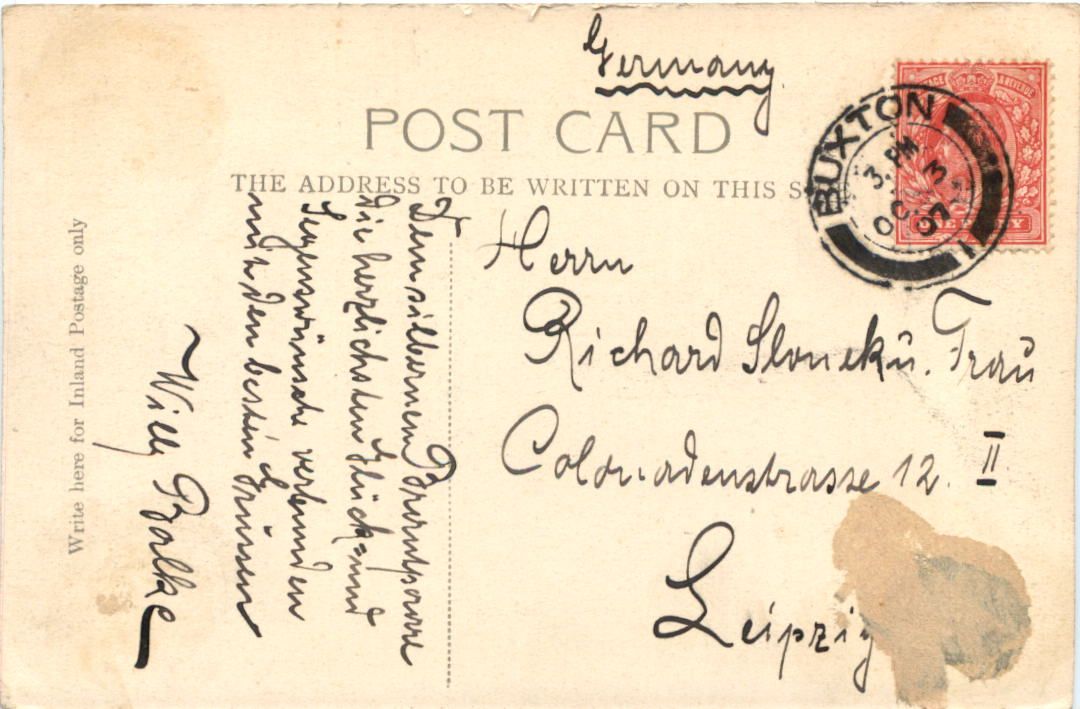 Germany
POST CARD
THE ADDRESS TO BE WRITTEN ON THIS S
BUXTON
3. PM
OC 3
07
1
Write here for Inland Postage only
Dem silbernen Brautpaare
die herzlichsten Glück- und
Segenswünsche verbunden
mit den besten Grüssen
Willy Balke
Herrn
Richard Slonek u. Frau
Colonadenstrasse 12. II
Leipzig